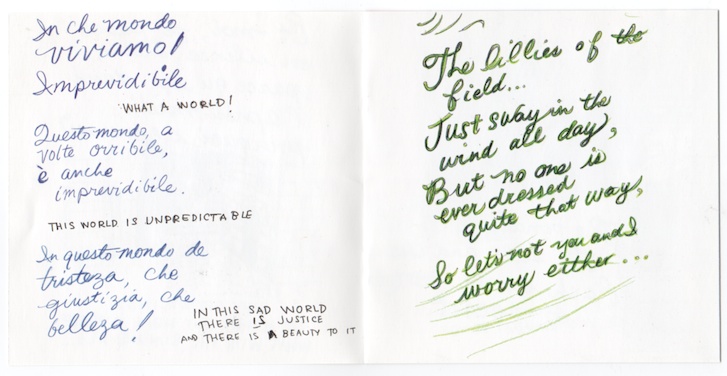 In che mondo
viviamo!
Imprevidibile
WHAT A WORLD!
Questo mondo, a
volte orribile,
è anche
imprevidibile.
THIS WORLD IS UNPREDICTABLE
In questo mondo de
tristeza, che
giustizia, che
belleza!
IN THIS SAD WORLD
THERE IS JUSTICE
AND THERE IS A BEAUTY TO IT
The lillies of the
field...
Just sway in the
wind all day,
But no one is
ever dressed
quite that way,
So let's not you and I
worry either...